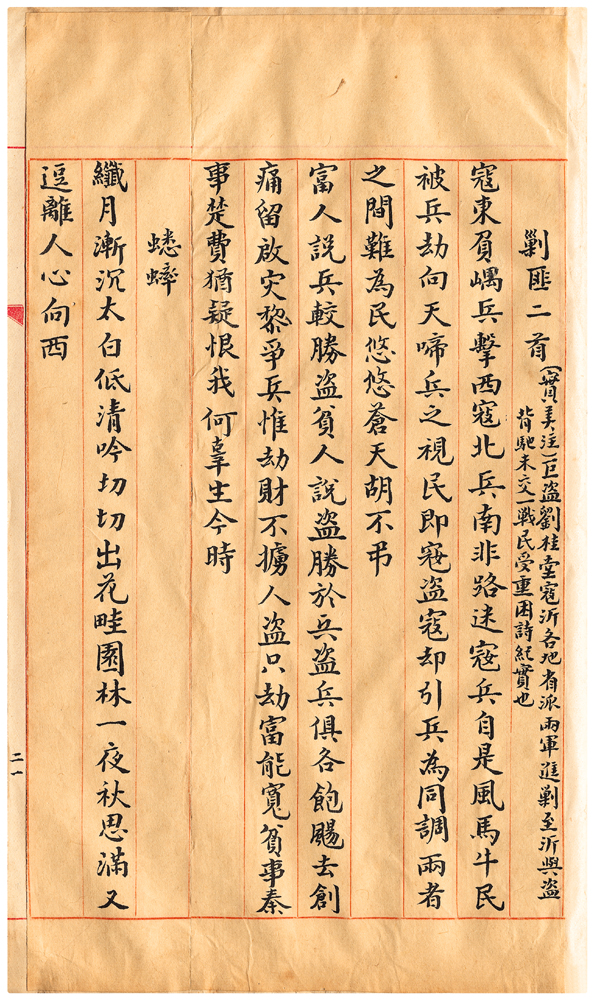 剿匪二首(寶美注:巨盜劉桂堂寇沂各地省派兩軍進剿至沂與盜
背馳未交一戰民受重困詩紀實也
寇東負嵎兵擊西寇北兵南非路迷寇兵自是風馬牛民
被兵劫向天啼兵之視民即寇盜寇却引兵為同調兩者
之間難為民悠悠蒼天胡不弔
富人說兵較勝盜貧人說盜勝於兵盜兵俱各飽颺去創
痛留啟灾黎爭兵惟劫財不擄人盜只劫富能寬貧事秦
事楚費猶疑恨我何辜生今時
蟋蟀
纖月漸沉太白低清吟切切出花畦園林一夜秋思滿又
逗離人心向西
二一